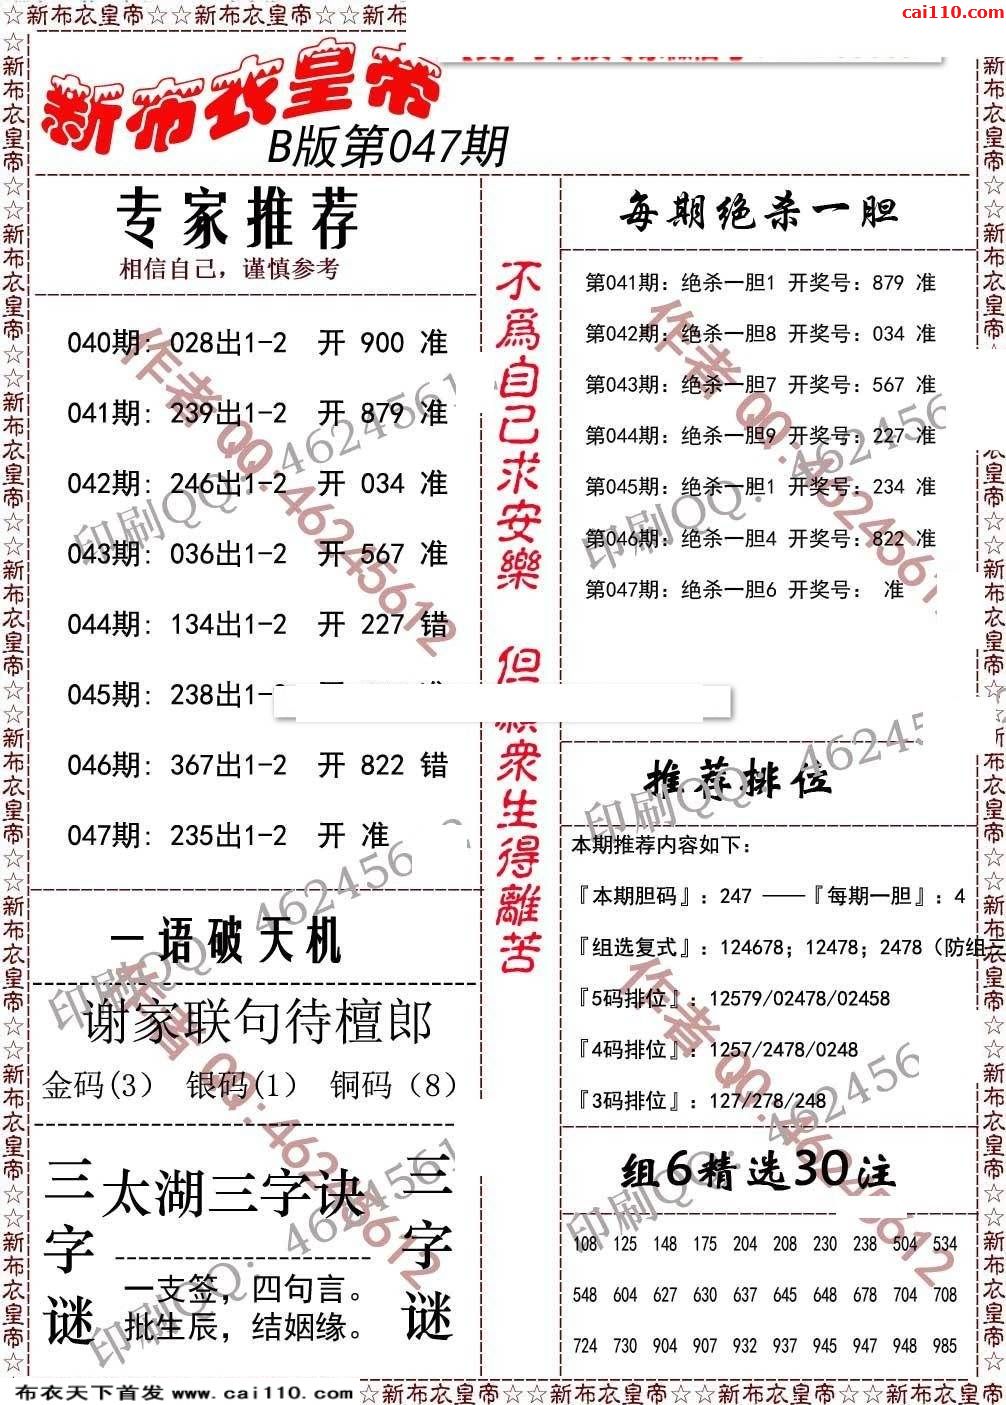 ☆新布衣皇帝☆☆新布衣皇帝☆☆新布
cai110.com
新布衣皇帝
B版第047期
专家推荐
相信自己，谨慎参考
040期: 028出1-2 开 900 准
041期: 239出1-2 开 879 准
042期: 246出1-2 开 034 准
043期: 036出1-2 开 567 准
044期: 134出1-2 开 227 错
045期: 238出1-
046期: 367出1-2 开 822 错
047期: 235出1-2 开 准
一语破天机
谢家联句待檀郎
金码(3) 银码(1) 铜码（8）
三字谜
太湖三字诀
一支签，四句言。
批生辰，结姻缘。
三字谜
不為自己求安樂
但願衆生得離苦
每期绝杀一胆
第041期: 绝杀一胆1 开奖号: 879 准
第042期: 绝杀一胆8 开奖号: 034 准
第043期: 绝杀一胆7 开奖号: 567 准
第044期: 绝杀一胆9 开奖号: 227 准
第045期: 绝杀一胆1 开奖号: 234 准
第046期: 绝杀一胆4 开奖号: 822 准
第047期: 绝杀一胆6 开奖号: 准
推荐排位
本期推荐内容如下:
『本期胆码』: 247 ——『每期一胆』: 4
『组选复式』: 124678; 12478; 2478（防组三
『5码排位』: 12579/02478/02458
『4码排位』: 1257/2478/0248
『3码排位』: 127/278/248
组6精选30注
108 125 148 175 204 208 230 238 504 534
548 604 627 630 637 645 648 678 704 708
724 730 904 907 932 937 945 947 948 985
作者QQ:46245612
印刷QQ: 462456
布衣天下首发 www.cai110.com
☆新布衣皇帝☆☆新布衣皇帝☆☆新布衣皇帝☆☆新布衣皇帝☆